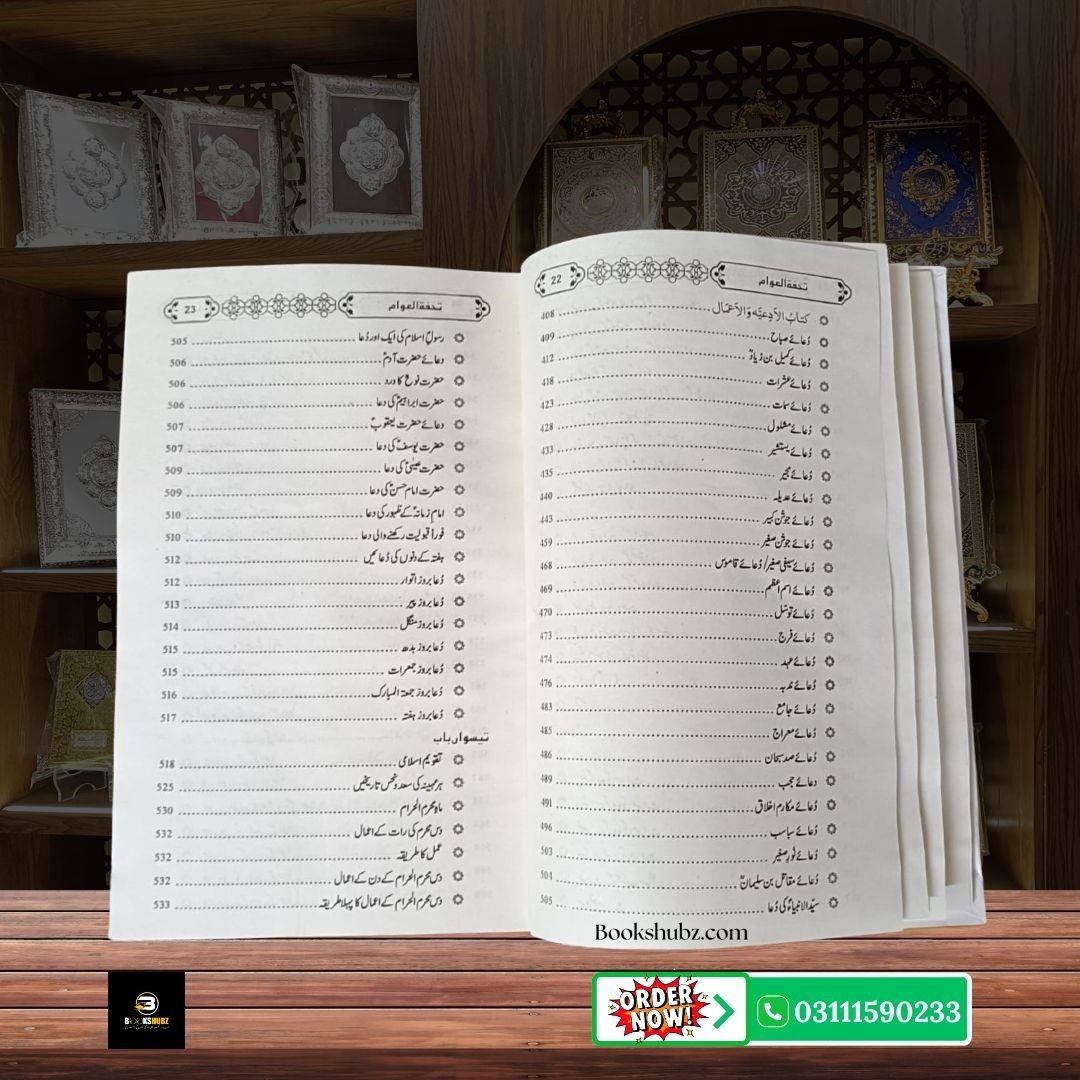 تحفۃ العوام 22
کتابُ الاَدعِیَّہ وَالاَعمَال 408
دُعائے صباح 409
دُعائے کمیل بن زیادؓ 412
دُعائے عشرات 418
دُعائے سمات 423
دُعائے مشلول 428
دُعائے یستشیر 433
دُعائے مجیر 435
دُعائے عدیلہ 440
دُعائے جوشن کبیر 443
دُعائے جوشن صغیر 459
دُعائے سیفی صغیر/ دُعائے قاموس 468
دُعائے اسم اعظم 469
دُعائے توسّل 470
دُعائے فرج 473
دُعائے عہد 474
دُعائے ندبہ 476
دُعائے جامع 483
دُعائے معراج 485
دُعائے صد سبحان 486
دعائے حجب 489
دُعائے مکارم اخلاق 491
دُعائے سباسب 496
دُعائے نُور صغیر 503
دُعائے مقاتل بن سلیمانؓ 504
سیّد الانبیاءؐ کی دُعا 505
تحفۃ العوام 23
رسولِؐ اسلام کی ایک اور دُعا 505
دعائے حضرت آدمؑ 506
حضرت نوحؑ کا ورد 506
حضرت ابراہیمؑ کی دعا 506
دعائے حضرت یعقوبؑ 507
حضرت یوسفؑ کی دعا 507
حضرت عیسیٰؑ کی دعا 509
حضرت امام حسنؑ کی دعا 509
امام زمانہؑ کے ظہور کی دعا 510
فوراً قبولیت رکھنے والی دعا 510
ہفتہ کے دنوں کی دُعائیں 512
دُعا بروز اتوار 512
دُعا بروز پیر 513
دُعا بروز منگل 514
دُعا بروز بدھ 515
دُعا بروز جمعرات 515
دُعا بروز جمعۃ المبارک 516
دُعا بروز ہفتہ 517
تیسواں باب
تقویم اسلامی 518
ہر مہینہ کی سعد و نحس تاریخیں 525
ماہِ محرم الحرام 530
دس محرم کی رات کے اعمال 532
عمل کا طریقہ 532
دس محرم الحرام کے دن کے اعمال 532
دس محرم الحرام کے اعمال کا پہلا طریقہ 533
Bookshubz.com
BOOKSHUBZ
ORDER NOW!
03111590233